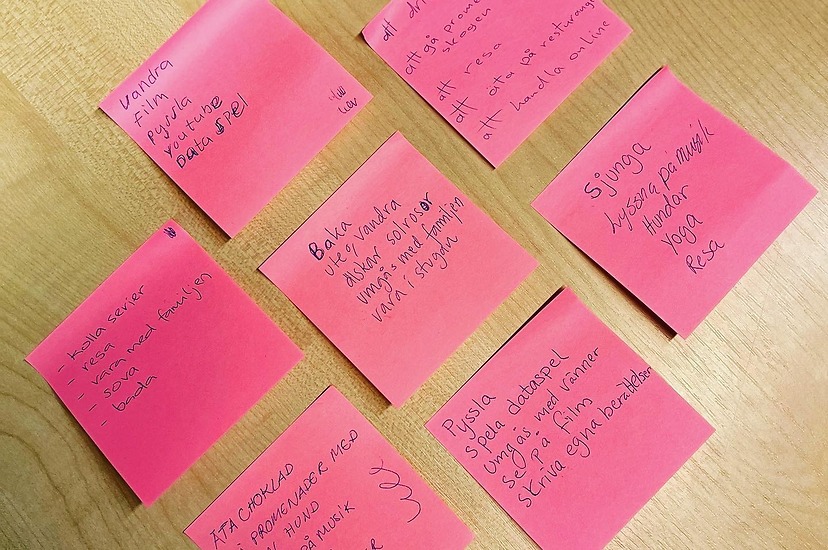 Vandra
Film
Pyssla
Youtube
Dataspel
att
att gå prome
skogen
att resa
att äta på resturang
att handla online
Sjunga
Lyssna på musik
Hundar
Yoga
Resa
Baka
ute o/ vandra
älskar solrosor
umgås med familjen
vara i stugan
- kolla serier
- resa
- vara med familjen
- sova
- bada
Pyssla
spela dataspel
umgås med vänner
se på film
skriva egna berättelser
ÄTA CHOKLAD
PROMENADER MED
HUND
PÅ MUSIK